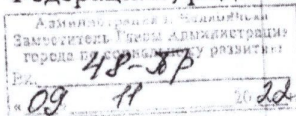 Администрация г. Челябинска
Заместитель Главы Администрации
города по социальному развитию
Вх. 48-ПР
« 09 11 2022